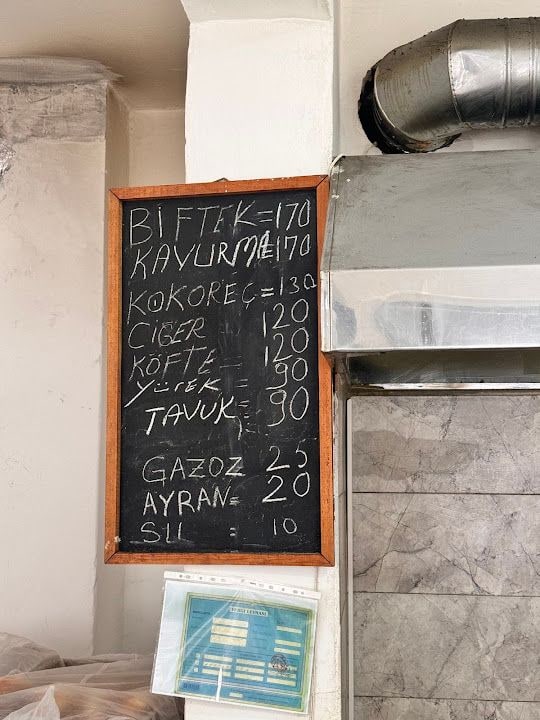 BİFTEK=170
KAVURMA=170
KOKOREÇ=130
CİĞER 120
KÖFTE= 120
YÜREK = 90
TAVUK= 90
GAZOZ 25
AYRAN= 20
SU = 10
VERGİ LEVHASI